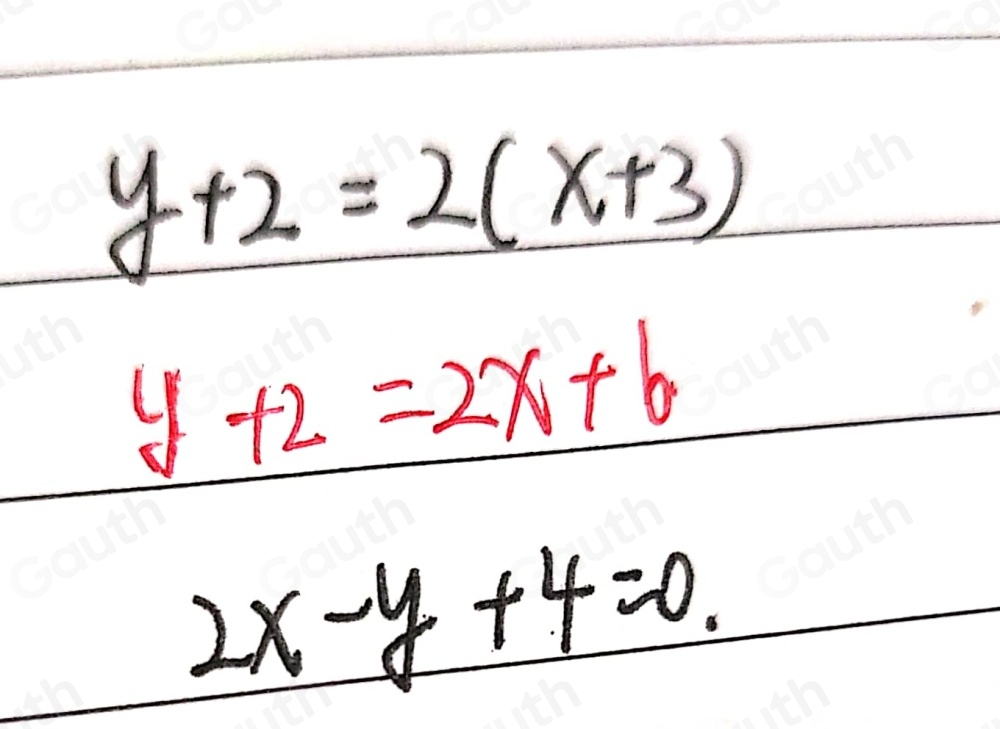 y+2=2(x+3)
y+2=2x+6
2x-y+4=0.